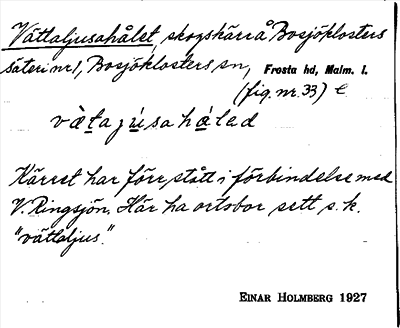 Vätlaljusahålet, skogskärr å Bosjöklosters
säteri nr 1, Bosjöklosters sn, Frosta hd, Malm. l.
(fig. nr. 33) e
vȧ̀taju̇́sahålad
Kärret har förr stått i förbindelse med
V. Ringsjön. Här ha ortsbor sett s. k.
"vätlaljus."
EINAR HOLMBERG 1927